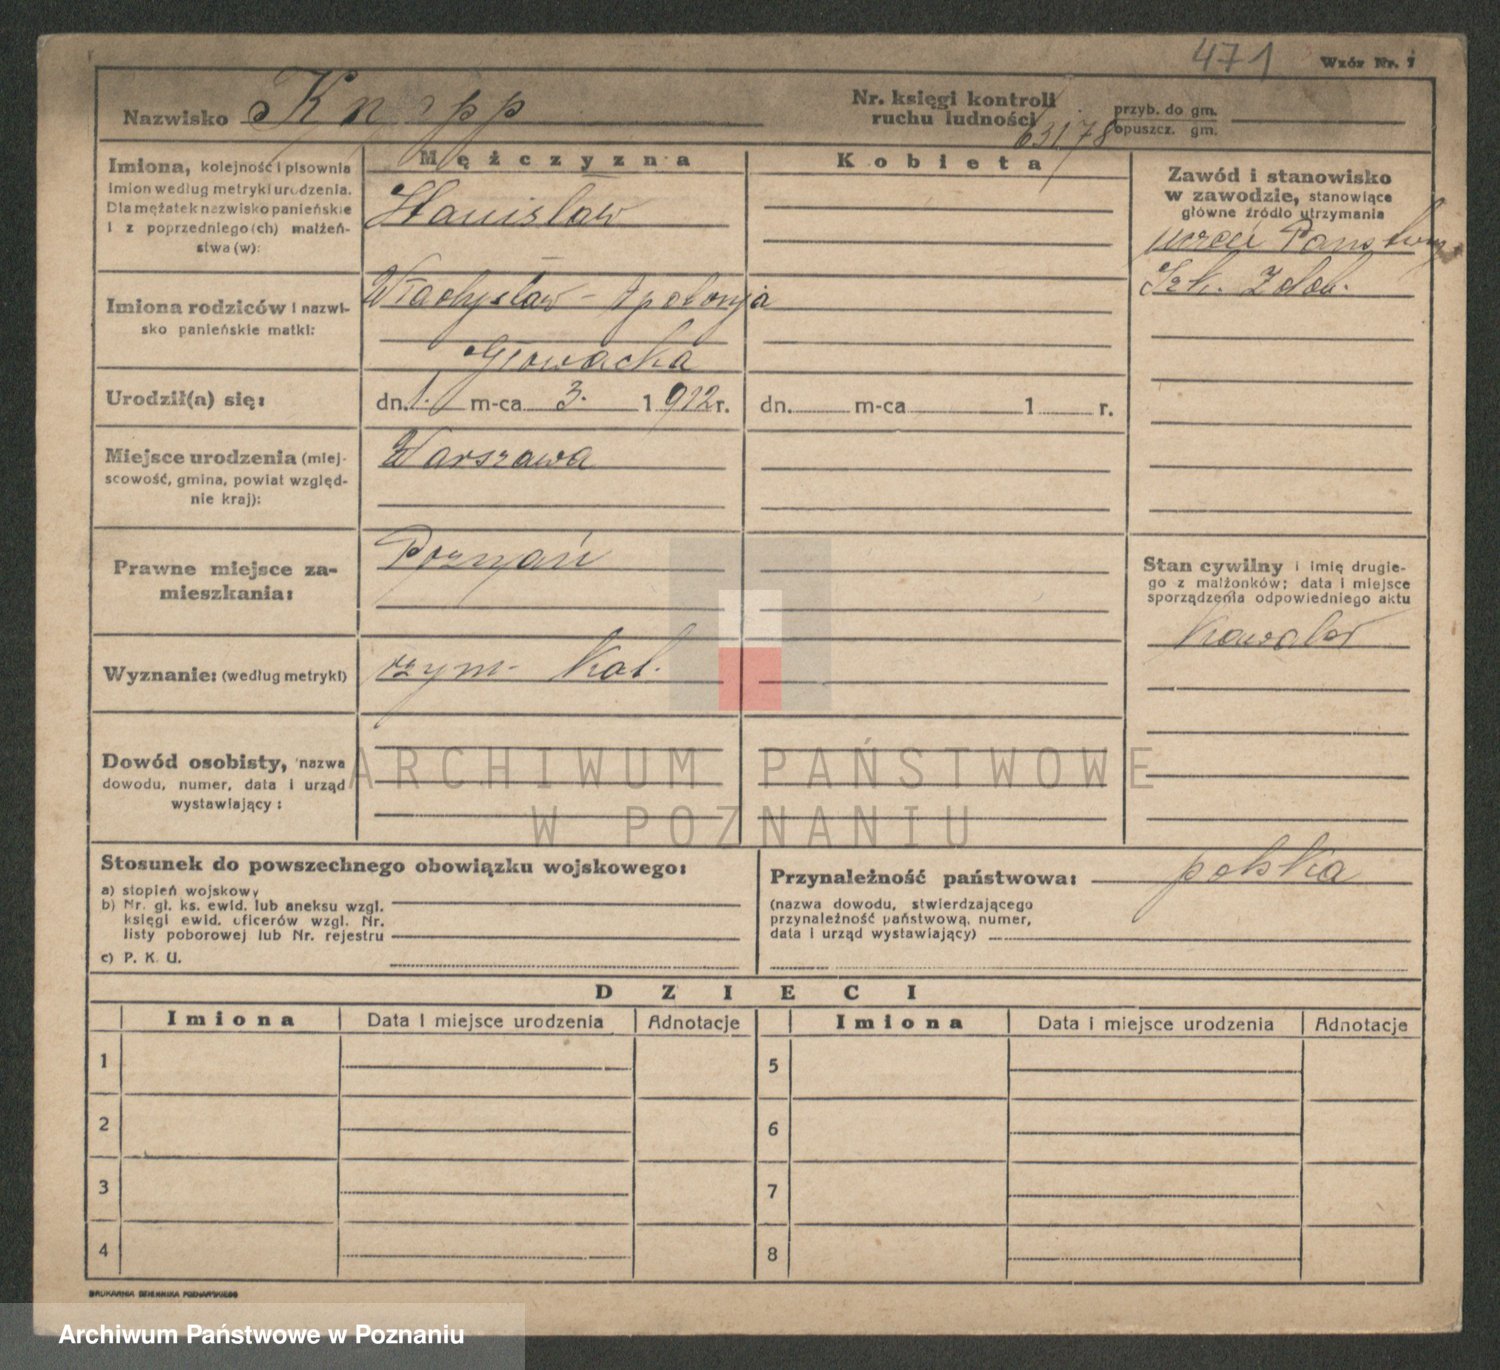 471
Wzór Nr. 7
Nazwisko Knapp
Nr. księgi kontroli
ruchu ludności 63178
przyb. do gm.
opuszcz. gm.
Imiona, kolejność i pisownia
imion według metryki urodzenia.
Dla mężatek nazwisko panieńskie
i z poprzedniego(ch) małżeń-
stwa(w):
Mężczyzna
Stanisław
Kobieta
Zawód i stanowisko
w zawodzie, stanowiące
główne źródło utrzymania
uczeń Państw
Szk. Zdob.
Imiona rodziców i nazwi-
sko panieńskie matki:
Władysław - Apolonja
Głowacka
Urodził(a) się:
dn. 1. m-ca 3. 1912 r.
dn. m-ca 1 r.
Miejsce urodzenia (miej-
scowość, gmina, powiat względ-
nie kraj):
Warszawa
Prawne miejsce za-
mieszkania:
Poznań
Stan cywilny i imię drugie-
go z małżonków; data i miejsce
sporządzenia odpowiedniego aktu
Kawaler
Wyznanie: (według metryki)
rzym- kat.
Dowód osobisty, nazwa
dowodu, numer, data i urząd
wystawiający:
ARCHIWUM PAŃSTWOWE
W POZNANIU
Stosunek do powszechnego obowiązku wojskowego:
a) stopień wojskowy
b) Nr. gł. ks. ewid. lub aneksu wzgl.
księgi ewid. oficerów wzgl. Nr.
listy poborowej lub Nr. rejestru
c) P. K. U.
Przynależność państwowa: polska
(nazwa dowodu, stwierdzającego
przynależność państwową, numer,
data i urząd wystawiający)
DZIECI
Imiona Data i miejsce urodzenia Adnotacje Imiona Data i miejsce urodzenia Adnotacje
1 5
2 6
3 7
4 8
DRUKARNIA DZIENNIKA POZNAŃSKIEGO
Archiwum Państwowe w Poznaniu